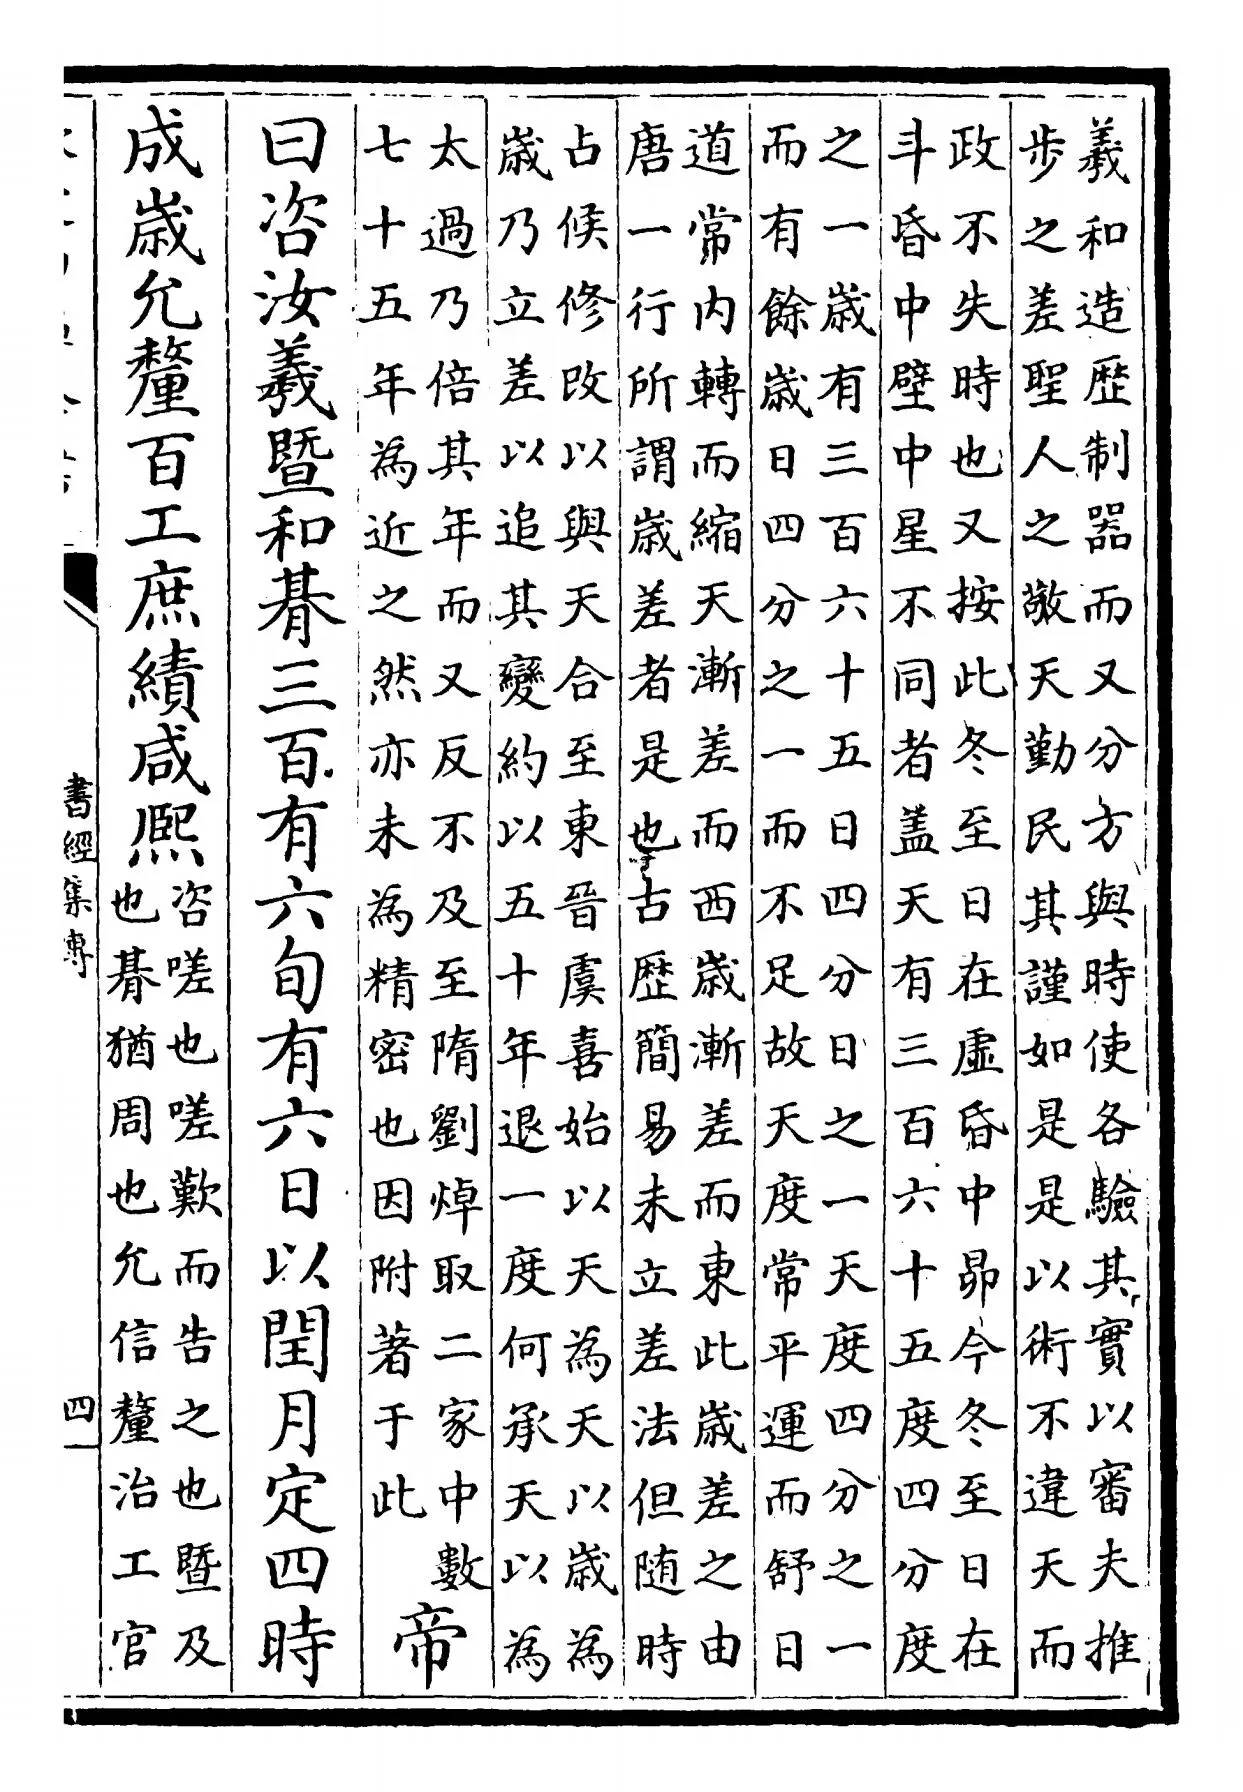 羲和造歴制器而又分方與時使各驗其實以審夫推
步之差聖人之敬天勤民其謹如是是以術不違天而
政不失時也又按此冬至日在虚昏中昴今冬至日在
斗昏中壁中星不同者盖天有三百六十五度四分度
之一歳有三百六十五日四分日之一天度四分之一
而有餘歳日四分之一而不足故天度常平運而舒日
道常内轉而縮天漸差而西歳漸差而東此歳差之由
唐一行所謂歳差者是也古歴簡易未立差法但随時
占候修改以與天合至東晉虞喜始以天為天以歳為
歳乃立差以追其變約以五十年退一度何承天以為
太過乃倍其年而又反不及至隋劉焯取二家中數
七十五年為近之然亦未為精密也因附著于此
帝
曰咨汝羲暨和朞三百有六旬有六日以閏月定四時
成歳允釐百工庶績咸熈
咨嗟也嗟歎而告之也暨及
也朞猶周也允信釐治工官
書經集傳
四